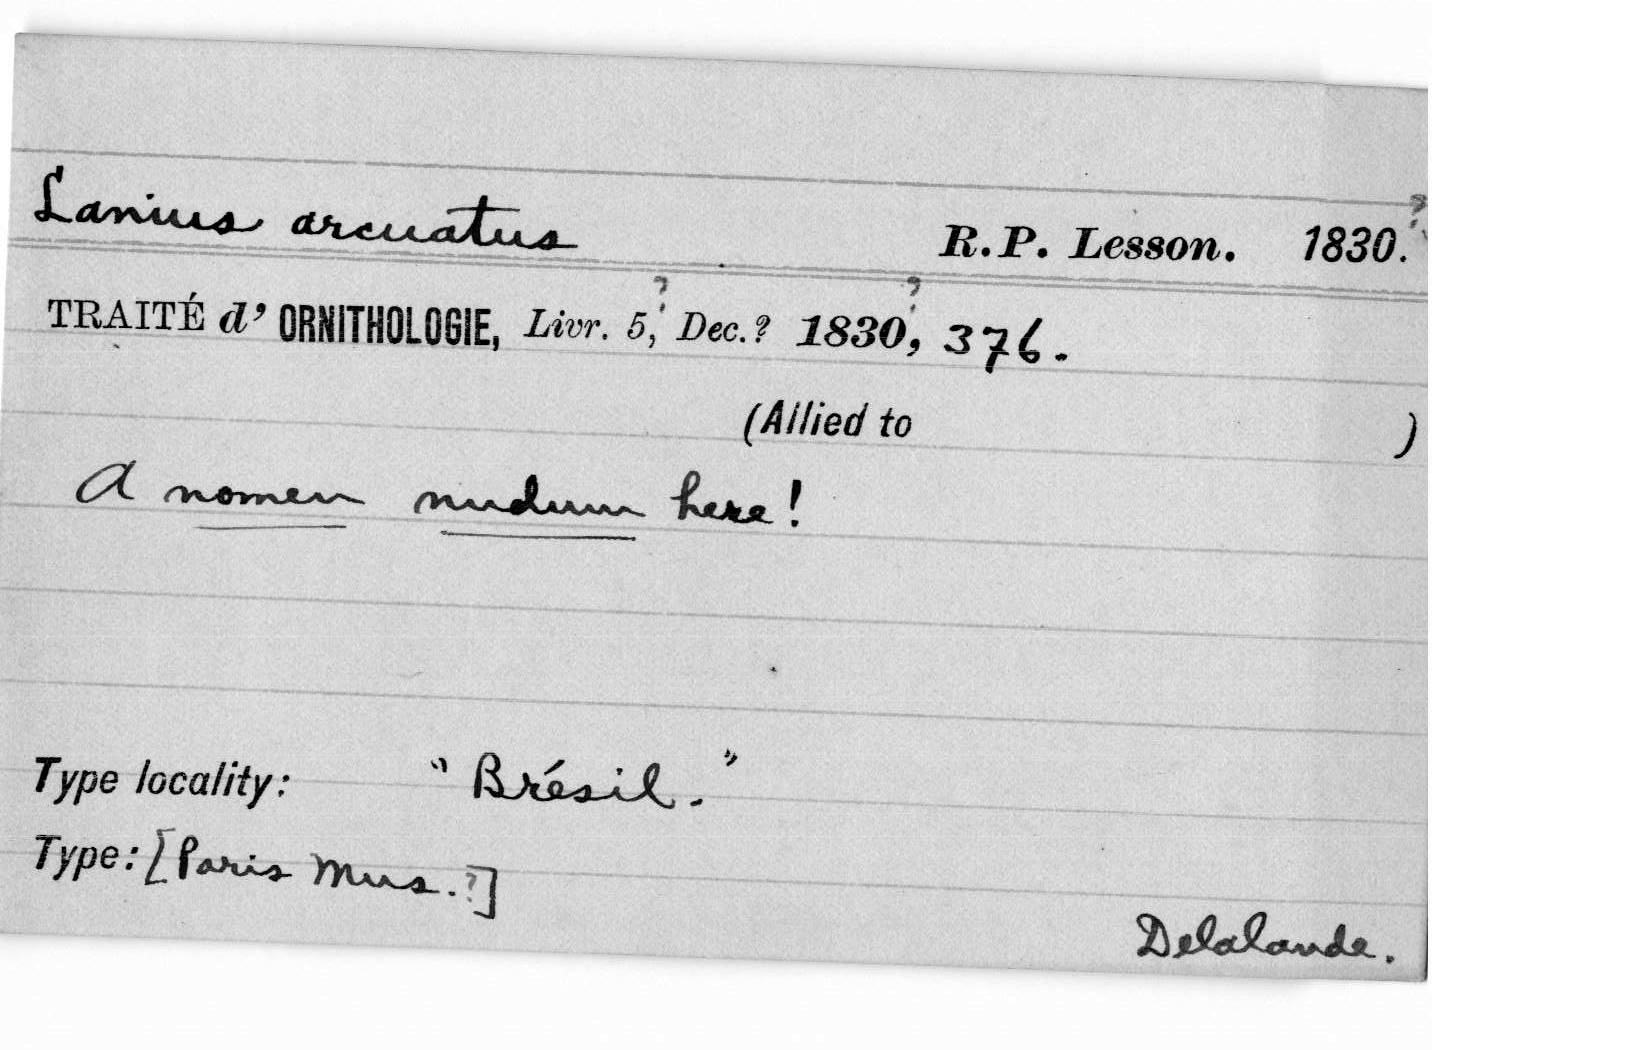 Lanius arcuatus R.P. Lesson. 1830.?
TRAITÉ d’ ORNITHOLOGIE, Livr. 5,? Dec.? 1830,? 376.
(Allied to )
A nomen nudum here!
Type locality: "Brésil."
Type: [Paris Mus.?]
Delalande.